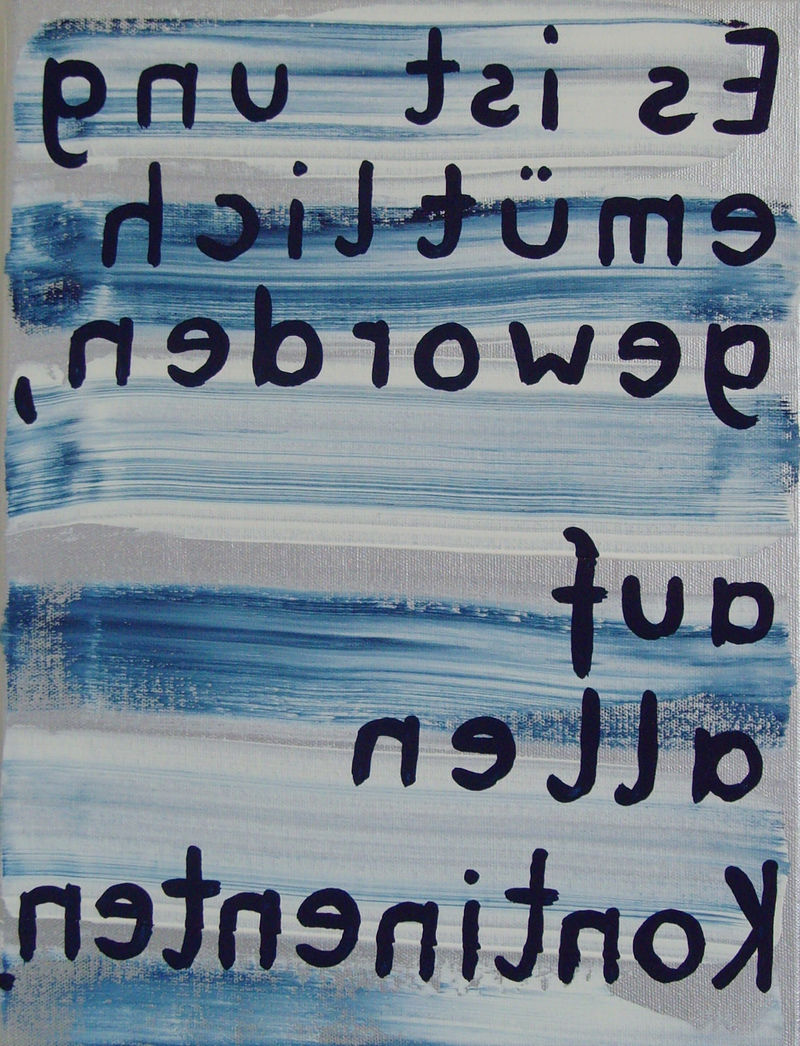 Es ist ung
emütlich
geworden,
auf
allen
Kontinenten.